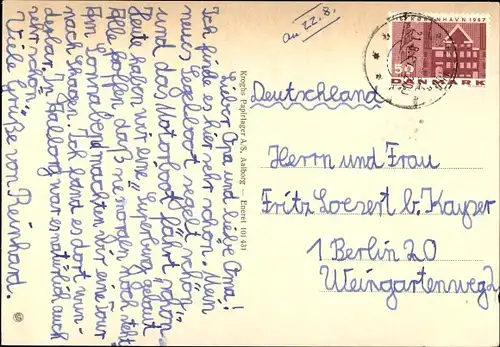 an 22.8.
Lieber Opa und liebe Oma!
Ich finde es hier sehr schön. Mein
neues Segelboot segelt schön
und das Motorboot fährt schön.
Heute haben wir eine „Seyerburg“ gebaut
Alle hoffen daß sie morgen noch steht
Am Sonnabend machten wir eine Tour
nach Skagen. Ich fand es dort wun-
derbar. In Aalborg war es natürlich auch
sehr schön.
Viele Grüße von Reinhard.
Kroghs Papirlager A/S, Aalborg — Eneret 101 431
KØBENHAVN 1967
50
DANMARK
Deutschland
Herrn und Frau
Fritz Loesert b. Kayser
1 Berlin 20
Weingartenweg 2